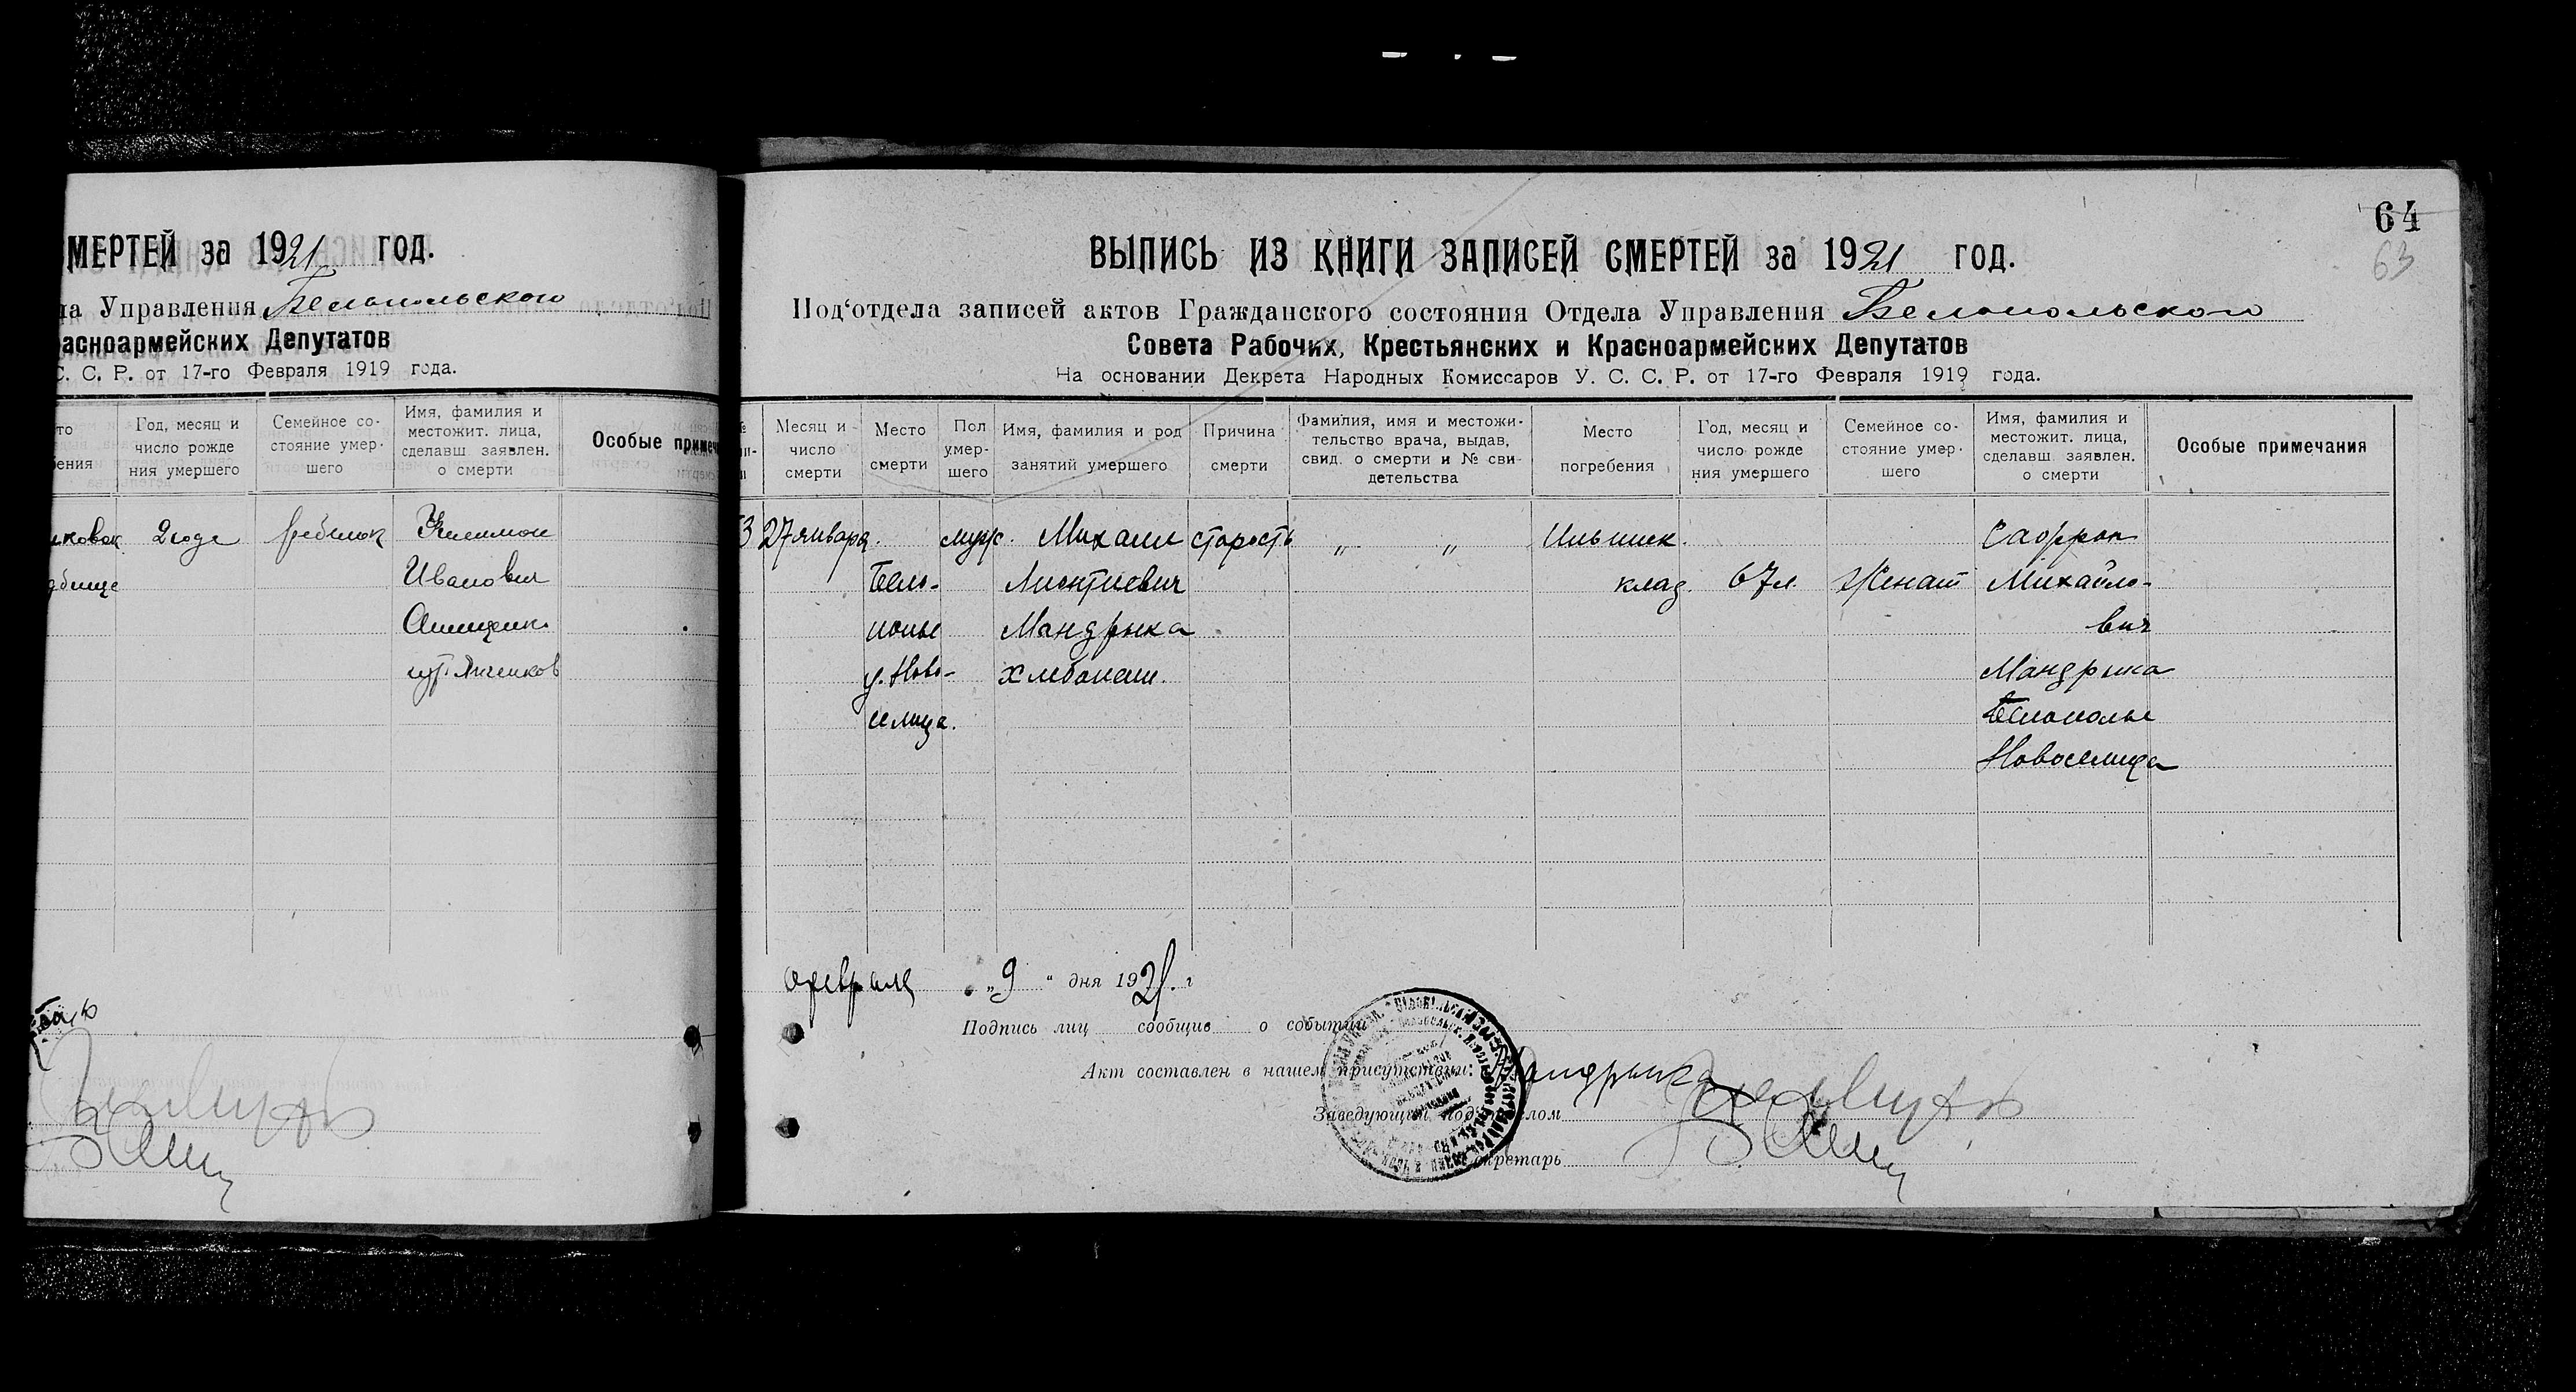 МЕРТЕЙ за 1921 год.
Управления Белопольского
расноармейских Депутатов
С. С. Р. от 17-го Февраля 1919 года.
Год, месяц и число рожде ния умершего
Семейное со- стояние умер- шего
Имя, фамилия и местожит. лица, сделавш. заявлен. о смерти
Особые примеч
2 года
ребенок
Иванович
64
63
ВЫПИСЬ ИЗ КНИГИ ЗАПИСЕЙ СМЕРТЕЙ за 1921 год.
Под‘отдела записей актов Гражданского состояния Отдела Управления Белопольского
Совета Рабочих, Крестьянских и Красноармейских Депутатов
На основании Декрета Народных Комиссаров У. С. С. Р. от 17-го Февраля 1919 года.
Месяц и число смерти
Место смерти
Пол умер- шего
Имя, фамилия и род занятий умершего
Причина смерти
Фамилия, имя и местожи- тельство врача, выдав, свид. о смерти и № сви- детельства
Место погребения
Год, месяц и число рожде ния умершего
Семейное со- стояние умер- шего
Имя, фамилия и местожит. лица, сделавш. заявлен. о смерти
Особые примечания
3 27 января. муж. Михаил старость „ „ Ильинск. Сафрон
Бело- клад. 67 л. Женат Михайло-
полье Мандрыка вич
у. Ново- хлебопаш. Мандрыка
селица. Белополье
Новоселица
февраля „9“ дня 1921. г
Подпись лиц сообщив о событии
Акт составлен в нашем присутствии: Мандрыка
Заведующий под лом
кретарь